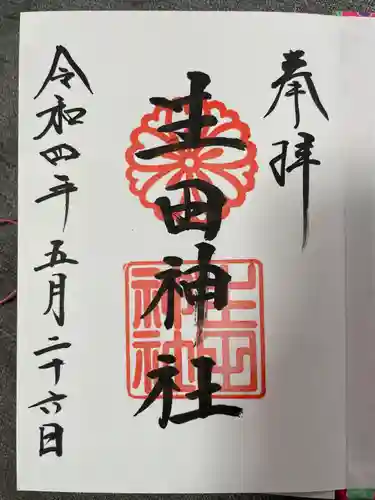 奉拝
生田神社
生田
神社
令和四年五月二十六日